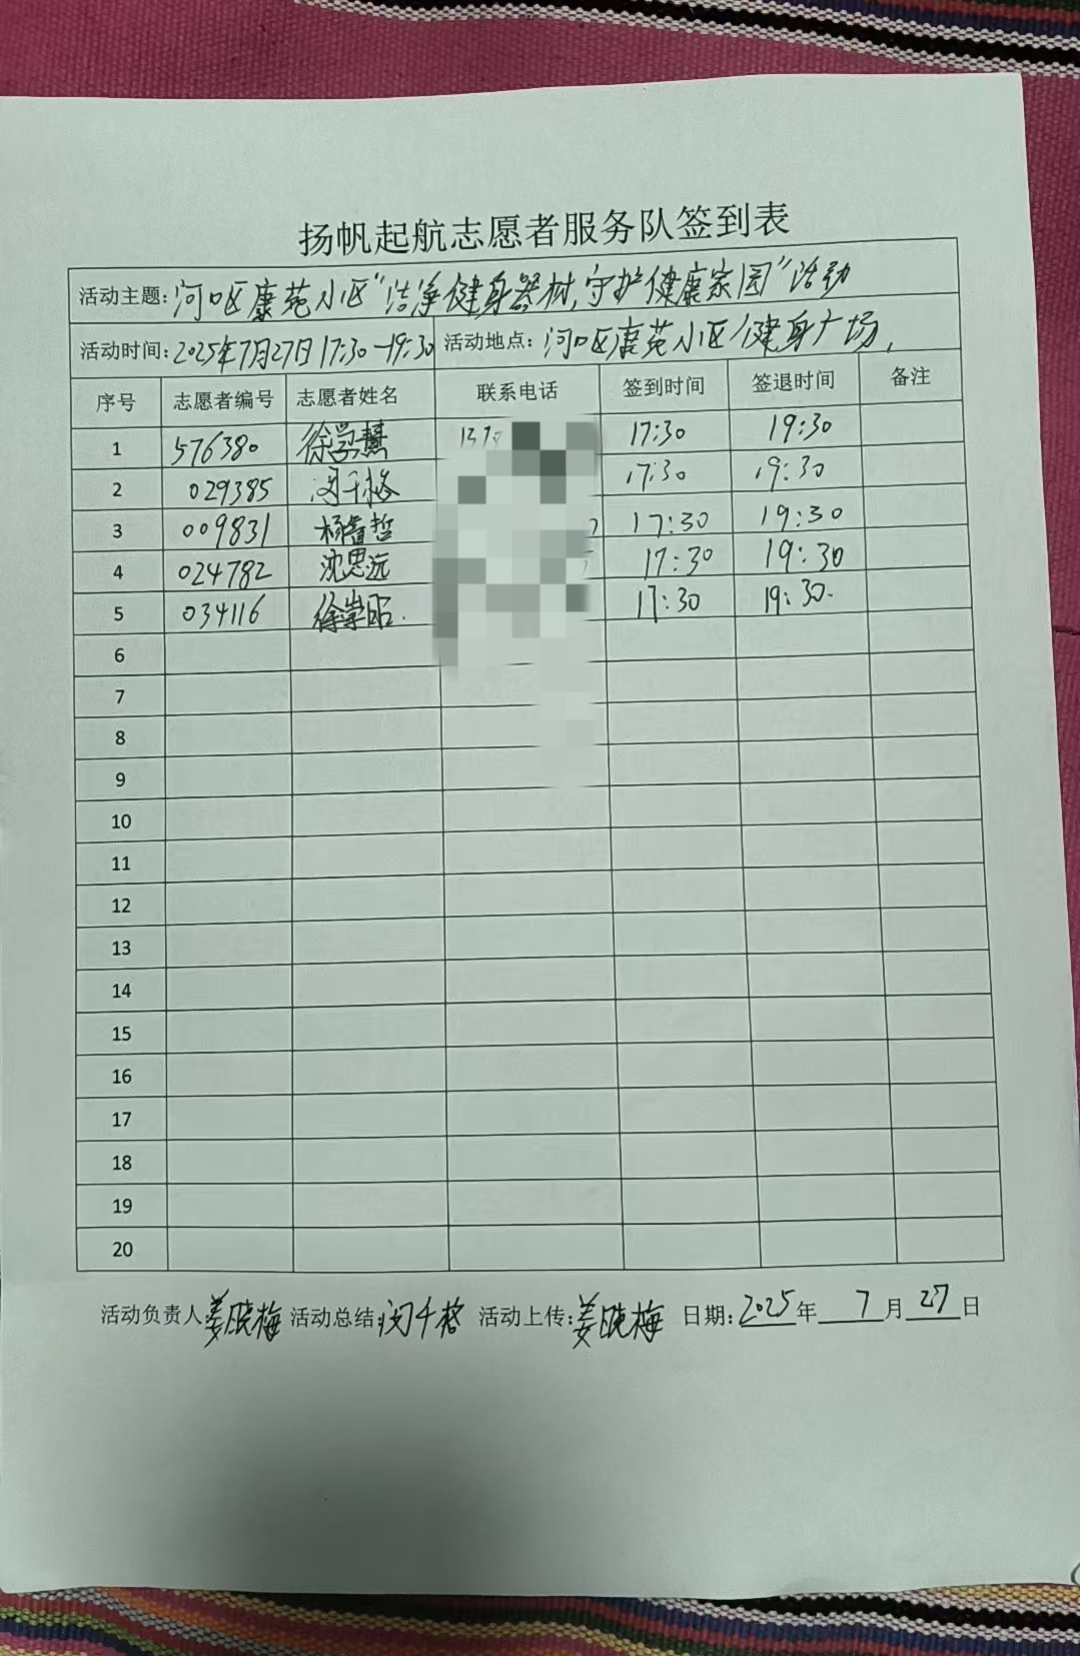 扬帆起航志愿者服务队签到表
活动主题:河口区康苑小区“洁净健身器材,守护健康家园”活动
活动时间:2025年7月27日17:30-19:30 活动地点:河口区康苑小区健身广场,
序号 志愿者编号 志愿者姓名 联系电话 签到时间 签退时间 备注
1 576380 徐学慧 17:30 19:30
2 029385 闵千格 17:30 19:30
3 009831 杨睿哲 17:30 19:30
4 024782 沈思远 17:30 19:30
5 034116 徐崇昭. 17:30 19:30.
6
7
8
9
10
11
12
13
14
15
16
17
18
19
20
活动负责人姜晓梅 活动总结:闵千格 活动上传:姜晓梅 日期:2025年 7月27日